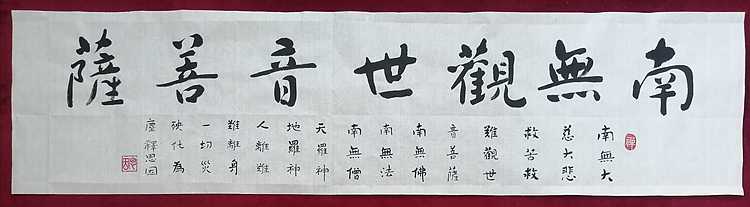 南無觀世音菩薩
南無大
慈大悲
救苦救
難觀世
音菩薩
南無佛
南無法
南無僧
天羅神
地羅神
人離難
難離身
一切災
殃化為
塵釋思